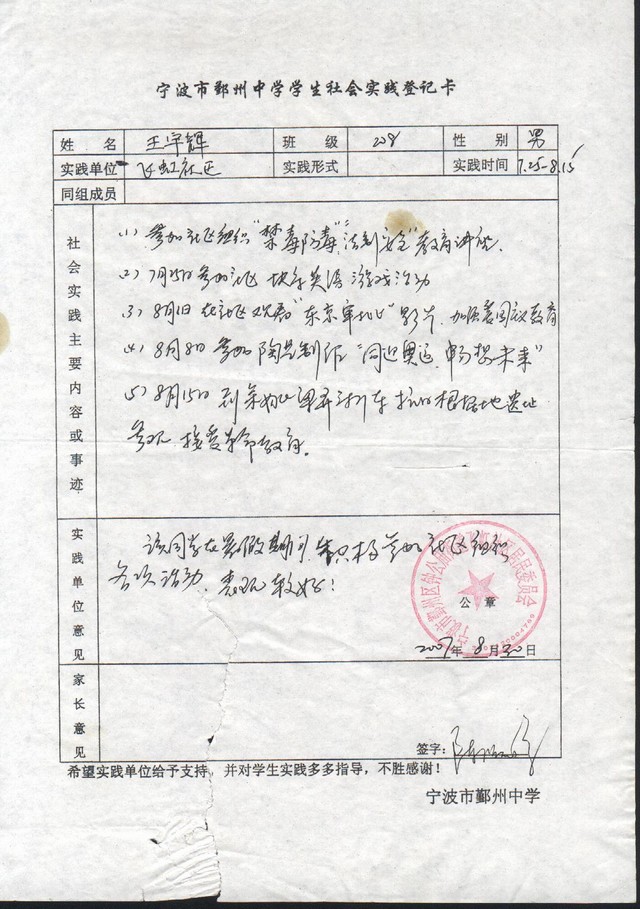 宁波市鄞州中学学生社会实践登记卡
姓名 王宇辉 班级 208 性别 男
实践单位 飞虹社区 实践形式 实践时间 7.25-8.15
同组成员
社会实践主要内容或事迹
(1) 参加社区组织"禁毒防毒""法制安全"教育讲座.
(2) 7月25日参加社区 快乐英语 游戏活动
(3) 8月1日 在社区观看"东京审判"影片,加强爱国主义教育
(4) 8月8日 参加陶艺制作 "同迎奥运,畅想未来"
(5) 8月15日 到余姚 梁弄浙东抗日根据地遗址
参观,接受革命教育.
实践单位意见
该同学在暑假期间,能积极参加社区组织
各项活动,表现较好!
宁波市鄞州区钟公庙 居民委员会
公章
2007年8月20日
家长意见
签字:
希望实践单位给予支持,并对学生实践多多指导,不胜感谢!
宁波市鄞州中学